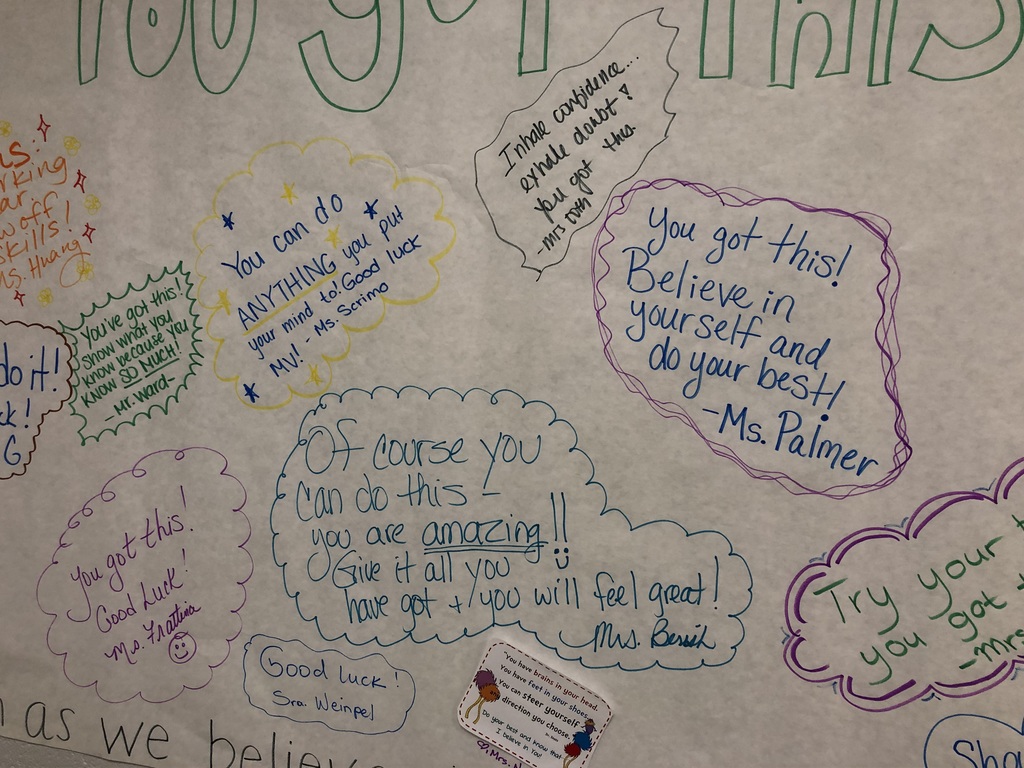 You got This
Inhale confidence...
exhale doubt!
You got this
-Mrs
rking
w off
skills!
Ms. Huang
You can do
ANYTHING you put
your mind to! Good luck
MV! - Ms. Scrimo
You got this!
Believe in
yourself and
do your best!
-Ms. Palmer
You've got this!
show what you
know because you
know SO MUCH!
-Mr. Ward-
do it!
ck!
G
Of course you
can do this -
you are amazing!!
Give it all you
have got + you will feel great!
Mrs.
You got this!
Good Luck!
Ms. Frattina
Try your
you got
-mrs
Good luck!
Sra. Weinpel
"You have brains in your head.
You have feet in your shoes.
You can steer yourself
direction you choose."
Do your best and know that
I believe in You!
Mrs. N
as we believe
Sho